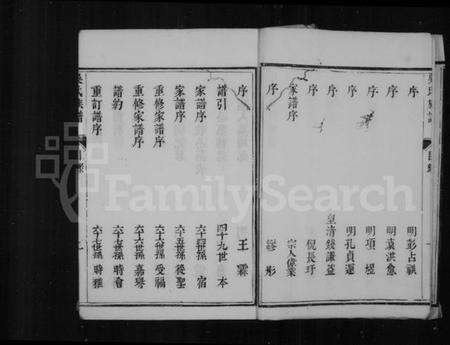 序 明彭占祺
序 明袁洪愈
序 明項樫
序 明孔貞運
序 皇清錢謙益
序 倪長玗
家譜序 宗人偉業
序 繆彤
序 王霖
譜引 四十九世 本
家譜序 六十四世孫 宿
家譜序 六十五世孫 後聖
重修家譜序 六十六世孫 受福
重修家譜序 六十六世孫 嘉譽
譜約 六十七世孫 時會
重訂譜序 六十七世孫 時雅
目錄
FamilySearch